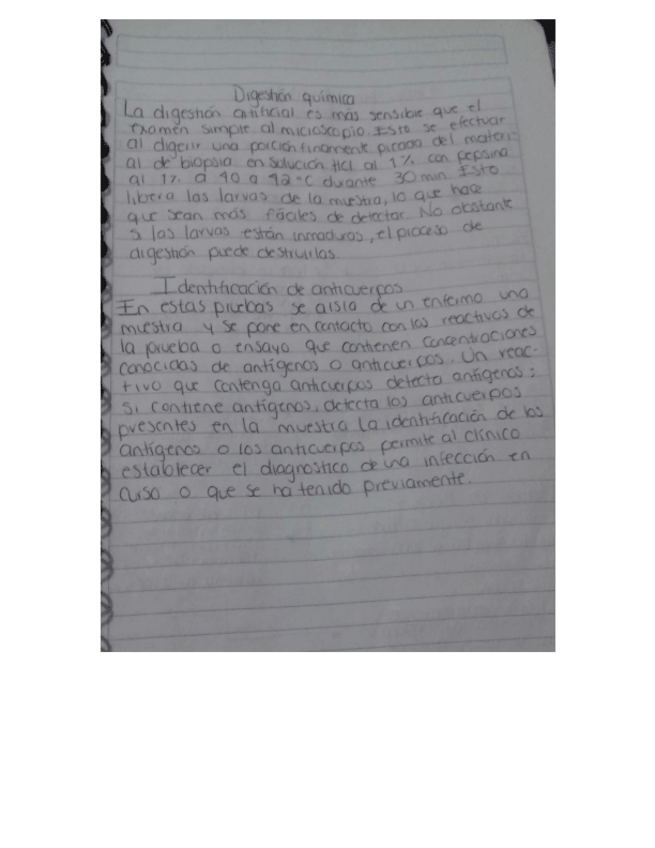 Digestión química
La digestión artificial es más sensible que el
examen simple al microscopio. Esto se efectuar
al digerir una porción finamente picada del materi-
al de biopsia en solución HCl al 1% con pepsina
al 1% a 40 a 42°C durante 30 min. Esto
libera las larvas de la muestra, lo que hace
que sean más fáciles de detectar. No obstante
si las larvas están inmaduras, el proceso de
digestión puede destruirlas.
Identificación de anticuerpos
En estas pruebas se aisla de un enfermo una
muestra y se pone en contacto con los reactivos de
la prueba o ensayo que contienen concentraciones
conocidas de antígenos o anticuerpos. Un reac-
tivo que contenga anticuerpos detecta antígenos;
si contiene antígenos, detecta los anticuerpos
presentes en la muestra la identificación de los
antígenos o los anticuerpos permite al clínico
establecer el diagnostico de una infección en
curso o que se ha tenido previamente.